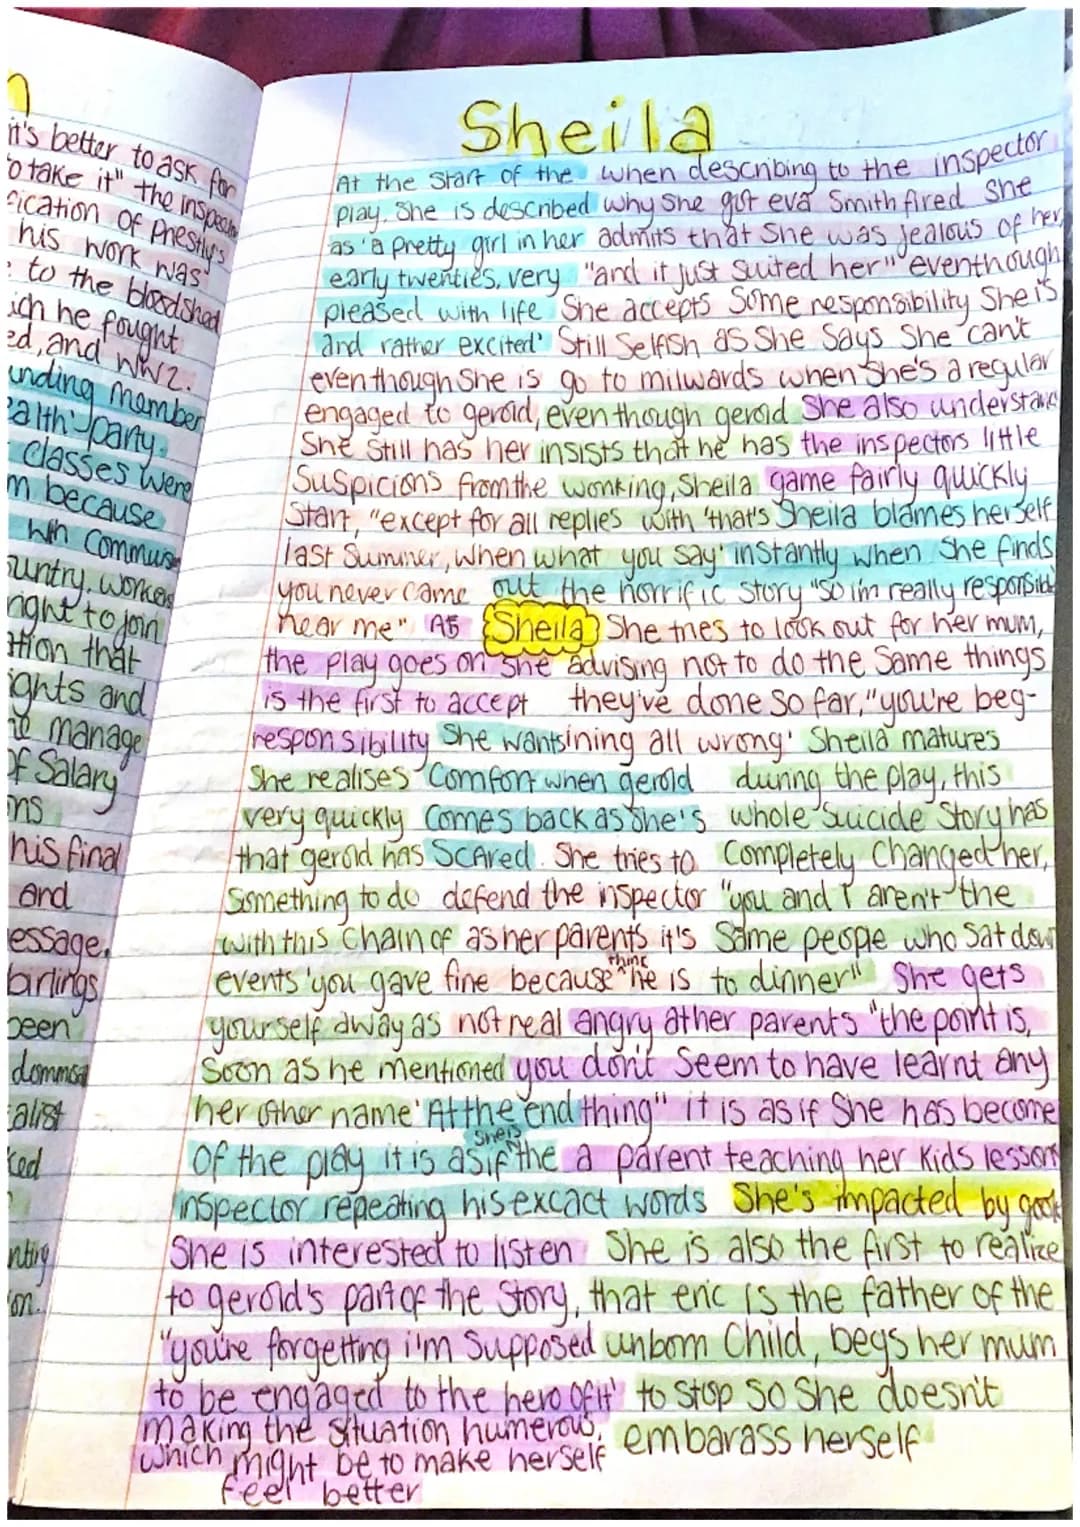 it's better to ask for
to take it" the inspector
fication of Priestly's
his work was
to the bloodshed
ich he fought
ed, and WW2.
unding member
ealth' party.
classes were
m because
Wh commus
untry, workers
right to join
ation that
ights and
manage
of Salary
ons
his final
and
essage.
birlings
been
domms
alist
ked
ntiry
on.
Sheila
At the start of the
play, She is described
as 'a pretty girl in her
early twenties, very
pleased with life
and rather excited'
even though She is
engaged to gerold,
She Still has her
Suspicions from the
Start, "except for all
last Summer, when
you never came
near me" As
the play goes on She
is the first to accept
responsibility
She realises
very quickly
that gerold has
Something to do
with this chain of
events 'you gave
yourself away as
Soon as he mentioned
her other name' At the end
of the play it is as if she's the
inspector repeating his excact words
She is interested to listen
to gerold's part of the Story,
"you're forgetting i'm Supposed
to be engaged to the hero of it'
making the situation humerous,
which might be to make herself
feel better
when describing to the inspector
why She got eva Smith fired She
admits that She was jealous of her,
"and it just suited her" eventhough
She accepts Some responsibility She is
Still Selfish as She Says She can't
go to milwards when She's a regular
even though gerold
insists that he was
wonking, Sheila
replies with 'that's
what you say'
She also understands
the inspectors little
game fairly quickly
Sheila blames herself
instantly when She finds
out the horrific story "so i'm really responsible
Sheila
She tries to look out for her mum,
advising not to do the Same things
they've done so far, "you're beg-
ining all wrong'
She wants
Comfort when gerold
Comes back as She's
Scared. She tries to
defend the inspector
as her parents it's
fine because thinc he is
not real
Sheila matures
during the play, this
whole Suicide Story has
Completely Changed her,
"you and I aren't the
Same peope who Sat down
to dinner" She gets
angry at her parents "the point is,
you don't Seem to have learnt any
thing" it is as if She has become
a parent teaching her kids lesson
She's impacted by
She is also the first to realize
that eric is the father of the
unborn Child, begs her mum
to stop so She doesn't
embarass herself